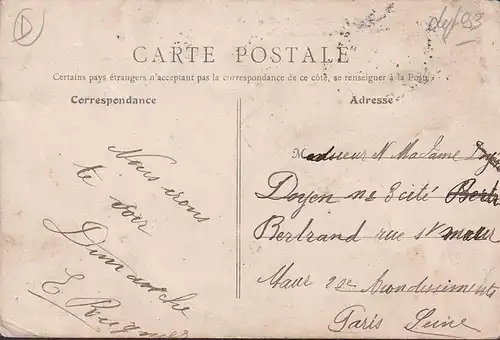 D
CARTE POSTALE
Certains pays étrangers n'acceptant pas la correspondance de ce côté, se renseigner à la Poste
Correspondance
Adresse
Nous irons
te voir
Dimanche
Madame
Doyen ne 3 cité
Bertrand rue St maur
Maur 20e Arondissements
Paris Seine